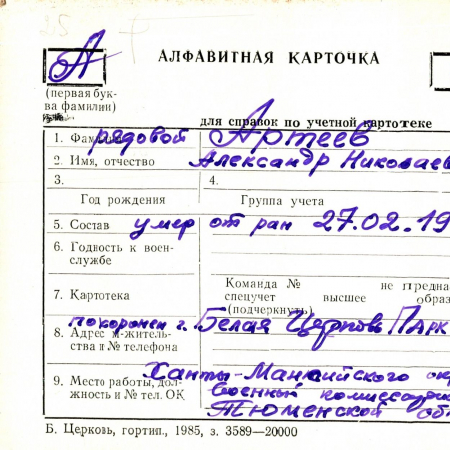 А
АЛФАВИТНАЯ КАРТОЧКА
(первая бук-
ва фамилии)
для справок по учетной картотеке
1. Фамилия рядовой Артеев
2. Имя, отчество Александр Николаев
3. 4.
Год рождения Группа учета
5. Состав умер от ран 27.02.19
6. Годность к воен-
службе
Команда № не предна
7. Картотека спецучет высшее образ
(подчеркнуть)
похоронен г. Белая Церковь Парк
8. Адрес м-житель-
ства и № телефона
Ханты-Мансийского окр
9. Место работы, дол-
жность и № тел. ОК военный комиссариа
Тюменской об
Б. Церковь, гортип., 1985, з. 3589—20000